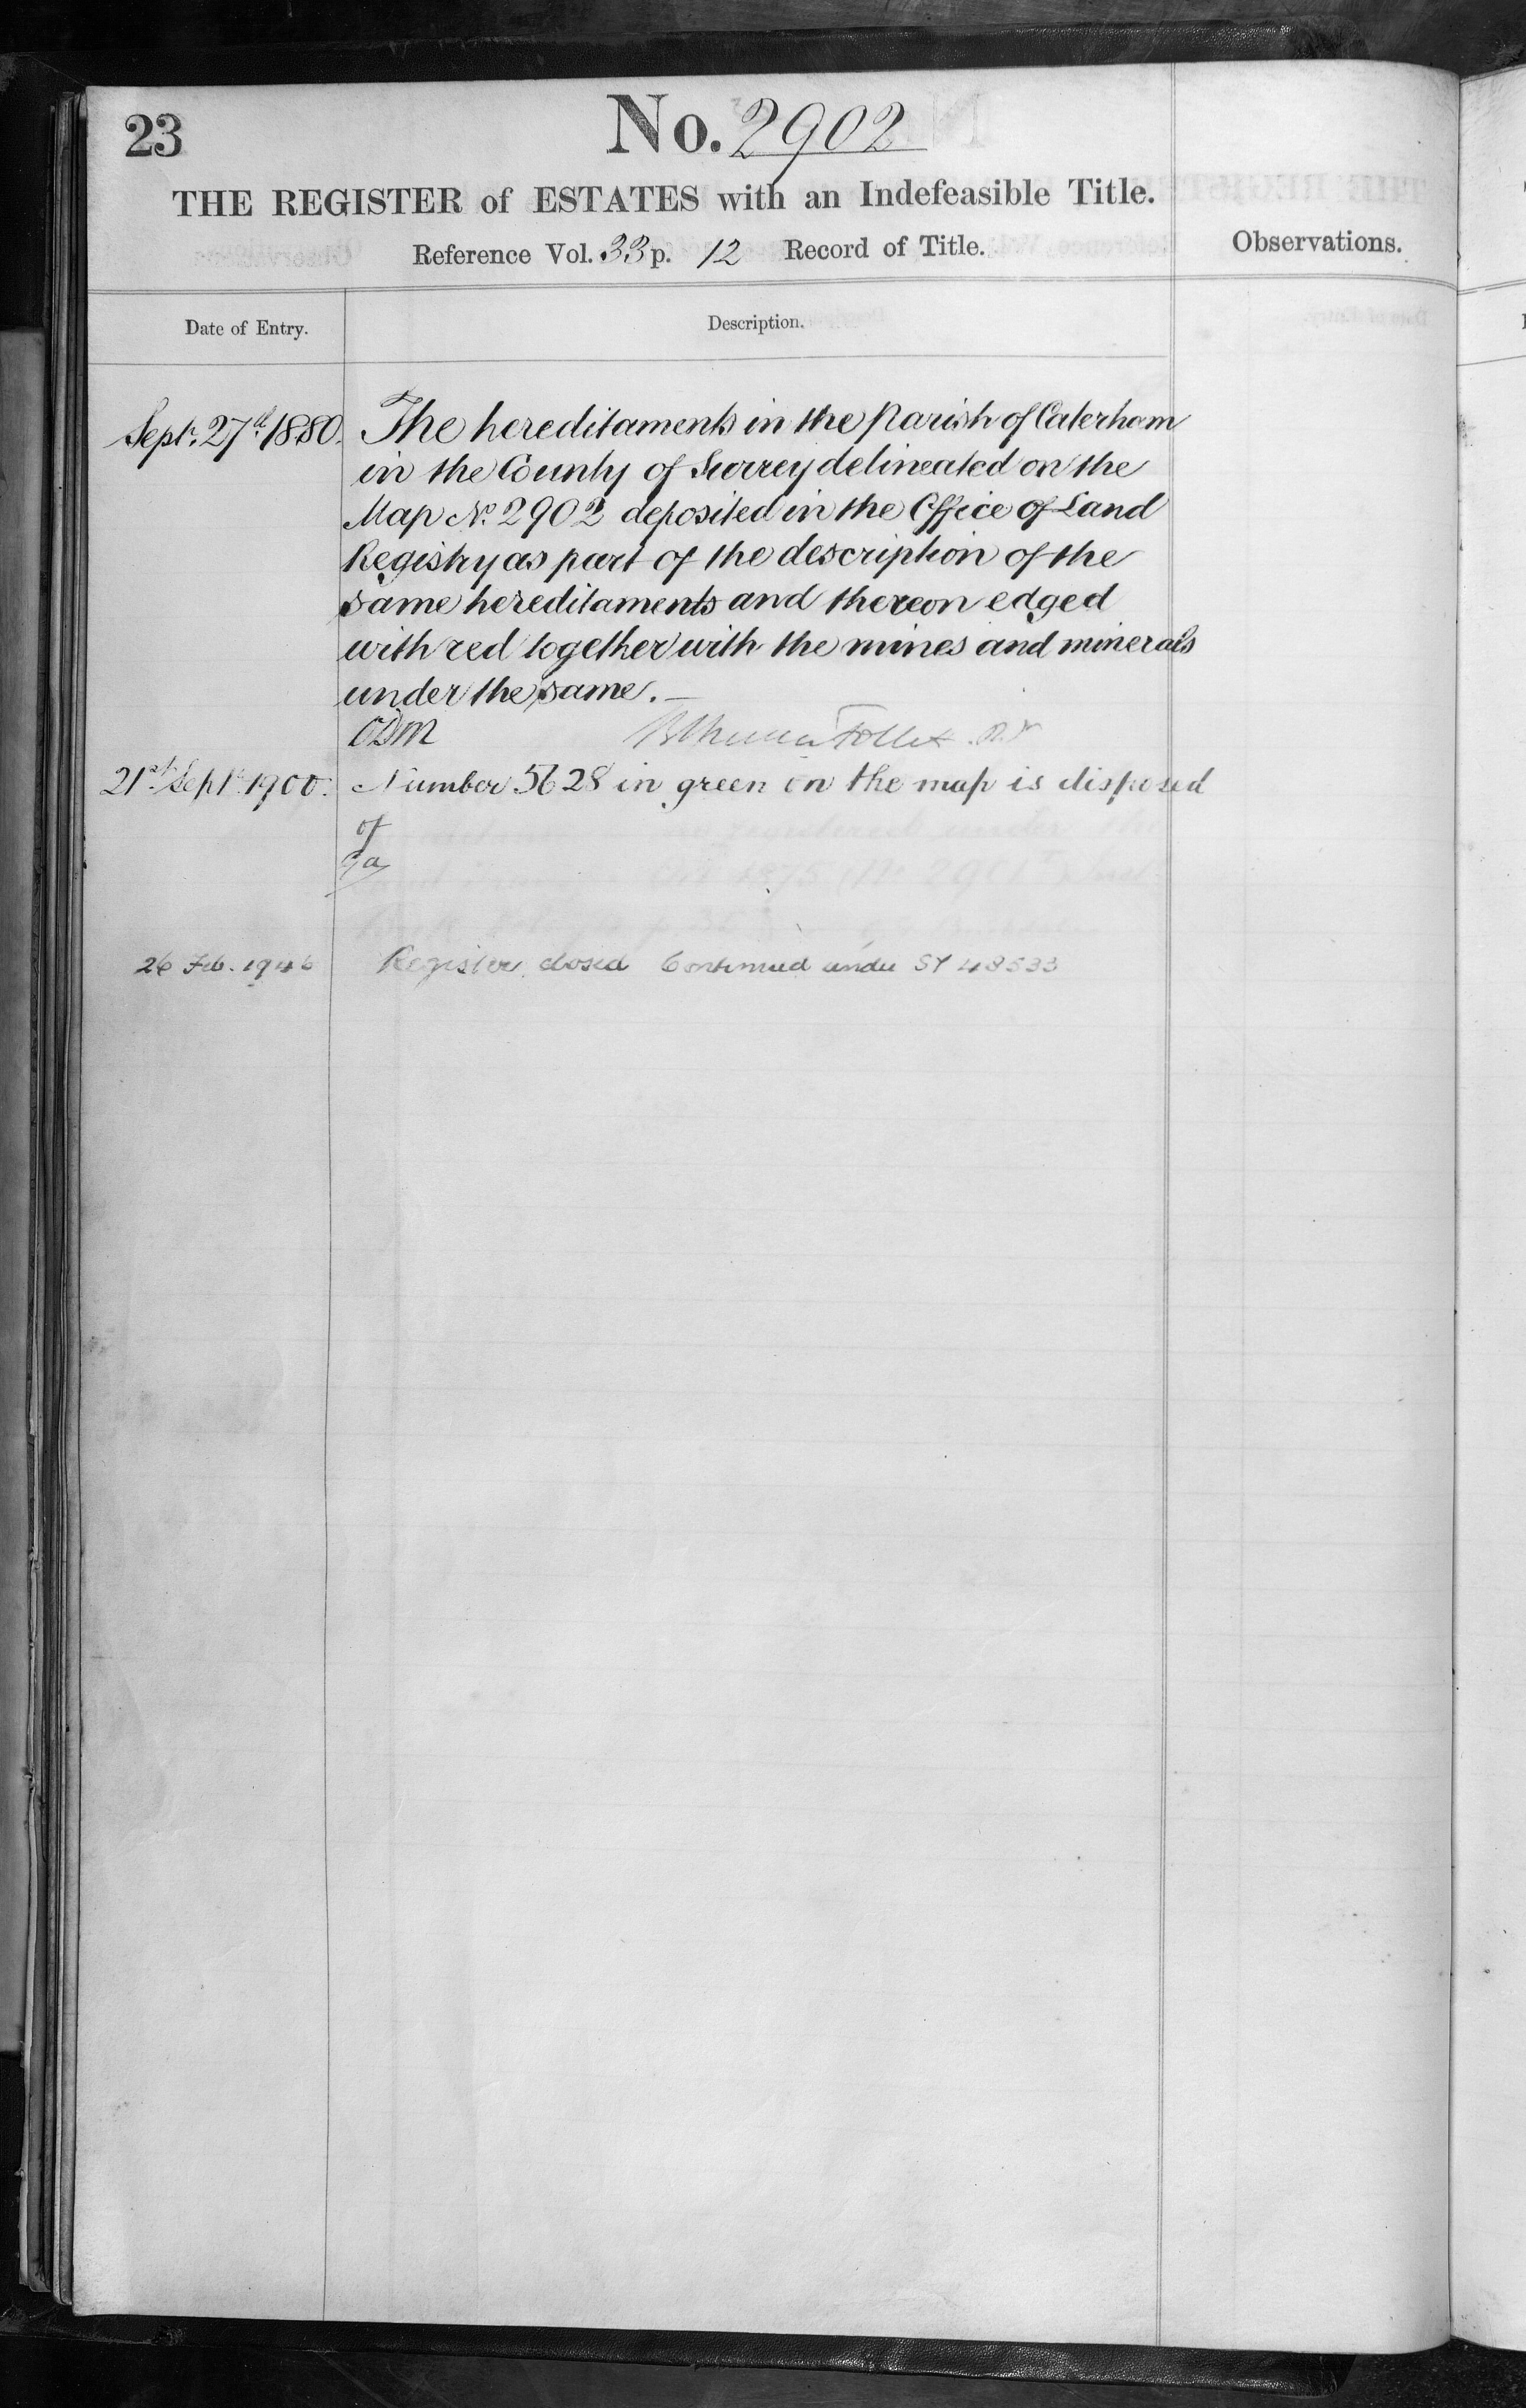 23
No. 2902
THE REGISTER of ESTATES with an Indefeasible Title.
Reference Vol. 33 p. 12 Record of Title.
Observations.
Date of Entry.
Description.
Septr. 27th 1880. The hereditaments in the Parish of Caterham
in the County of Surrey delineated on the
Map No. 2902 deposited in the Office of Land
Registry as part of the description of the
same hereditaments and thereon edged
with red together with the mines and minerals
under the same.—
Follett
21st Septr. 1900. Number 5628 in green on the map is disposed
of
26 Feb. 1946 Register closed Continued under SY 48533